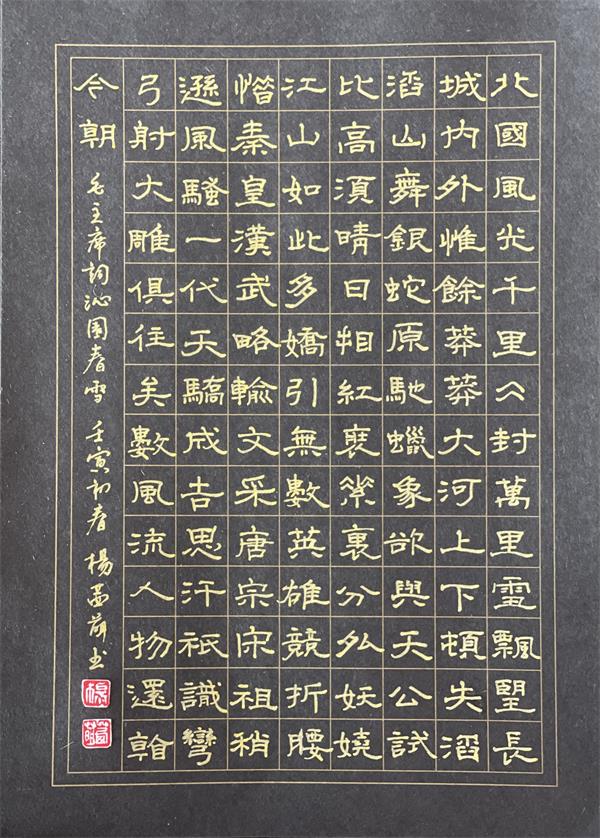 北國風光千里仌封萬里雪飄望長
城內外惟餘莽莽大河上下頓失滔
滔山舞銀蛇原馳蠟象欲與天公試
比高須晴日看紅裝素裹分外妖嬈
江山如此多嬌引無數英雄競折腰
惜秦皇漢武略輸文采唐宗宋祖稍
遜風騷一代天驕成吉思汗祇識彎
弓射大雕俱往矣數風流人物還看
今朝 毛主席詞沁園春雪 壬寅初春 楊書